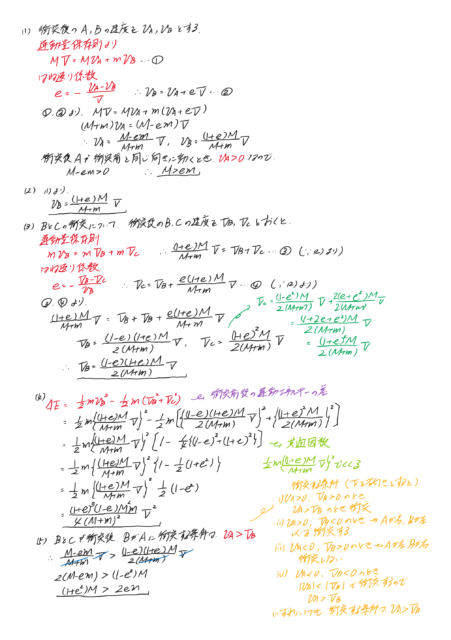 (1) 衝突後の A, B の速度を v_A, v_B とする.
運動量保存則より
MV = Mv_A + mv_B …①
はね返り係数
e = - \frac{v_A - v_B}{V} ∴ v_B = v_A + eV …②
①, ②より, MV = Mv_A + m(v_A + eV)
(M+m)v_A = (M-em)V
∴ v_A = \frac{M-em}{M+m} V, v_B = \frac{(1+e)M}{M+m} V
衝突後 A が衝突前と同じ向きに動くとき v_A > 0 なので
M-em>0 ∴ M>em
(2) (1)より.
v_B = \frac{(1+e)M}{M+m} V
(3) BとCの衝突について. 衝突後の B, C の速度を V_B, V_C とおくと.
運動量保存則
mv_B = mV_B + mV_C ∴ \frac{(1+e)M}{M+m} V = V_B + V_C …③ (∵ (2)より)
はね返り係数
e = - \frac{V_B - V_C}{v_B} ∴ V_C = V_B + \frac{e(1+e)M}{M+m} V …④ (∵ (2)より)
③, ④より
\frac{(1+e)M}{M+m} V = V_B + V_B + \frac{e(1+e)M}{M+m} V
V_B = \frac{(1-e)(1+e)M}{2(M+m)} V, V_C = \frac{(1+e)^2 M}{2(M+m)} V
∴ V_B = \frac{(1-e)(1+e)M}{2(M+m)} V
V_C = \frac{(1-e^2)M}{2(M+m)} V + \frac{2(e+e^2)M}{2(M+m)} V
= \frac{(1+2e+e^2)M}{2(M+m)} V
= \frac{(1+e)^2 M}{2(M+m)} V
(4) ΔE = \frac{1}{2}mv_B^2 - \frac{1}{2}m(V_B^2 + V_C^2) ← 衝突前後の運動エネルギーの差
= \frac{1}{2}m{\frac{(1+e)M}{M+m} V}^2 - \frac{1}{2}m[{\frac{(1-e)(1+e)M}{2(M+m)} V}^2 + {\frac{(1+e)^2 M}{2(M+m)}}^2]
= \frac{1}{2}m{\frac{(1+e)M}{M+m} V}^2 [1 - \frac{1}{4}{(1-e)^2 + (1+e)^2}] ← 共通因数
\frac{1}{2}m{\frac{(1+e)M}{M+m} V}^2 でくくる
= \frac{1}{2}m{\frac{(1+e)M}{M+m} V}^2 {1 - \frac{1}{2}(1+e^2)}
= \frac{1}{2}m{\frac{(1+e)M}{M+m} V}^2 \frac{1}{2}(1-e^2)
= \frac{(1+e)^2(1-e^2)M^2m}{4(M+m)^2} V^2
(5) BとCが衝突後 BがAに衝突する条件は v_A > V_B
∴ \frac{M-em}{M+m} V > \frac{(1-e)(1+e)M}{2(M+m)} V
2(M-em) > (1-e^2)M
(1+e^2)M > 2em
i) v_A>0, V_B>0 のとき
v_A>V_B のとき衝突
ii) v_A>0, V_B<0 のとき
必ず衝突する
iii) v_A<0, V_B>0 のとき
衝突しない
iv) v_A<0, V_B<0 のとき
|v_A|<|V_B| で衝突するので
v_A>V_B
いずれにしても 衝突する条件は v_A>V_B